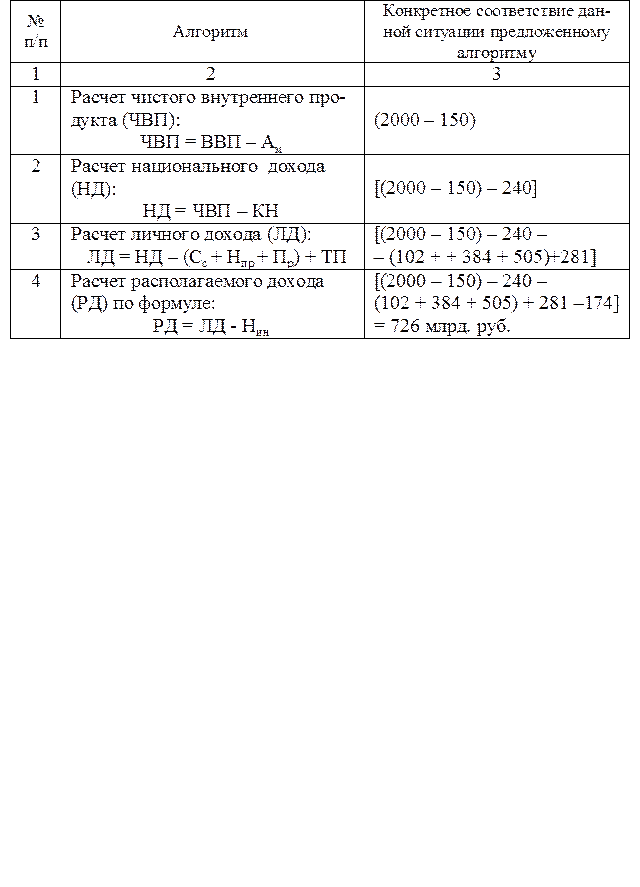 №
п/п
Алгоритм
Конкретное соответствие дан-
ной ситуации предложенному
алгоритму
1
2
3
1
Расчет чистого внутреннего про-
дукта (ЧВП):
ЧВП = ВВП – Ам
(2000 – 150)
2
Расчет национального дохода
(НД):
НД = ЧВП – КН
[(2000 – 150) – 240]
3
Расчет личного дохода (ЛД):
ЛД = НД – (Сс + Нпр + Пр) + ТП
[(2000 – 150) – 240 –
– (102 + + 384 + 505)+281]
4
Расчет располагаемого дохода
(РД) по формуле:
РД = ЛД - Нин
[(2000 – 150) – 240 –
(102 + 384 + 505) + 281 –174]
= 726 млрд. руб.